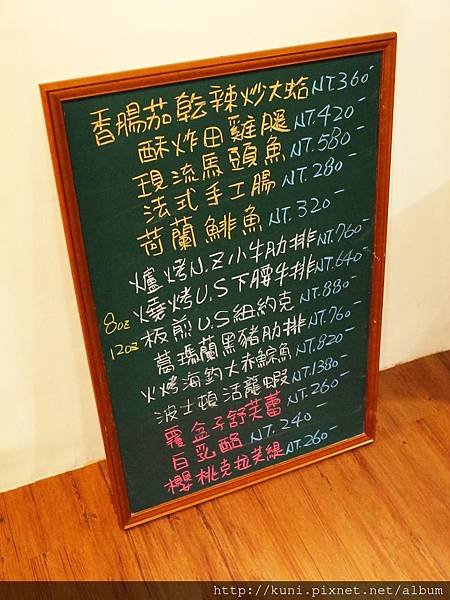 香腸茄乾辣炒大蛤NT.360-
酥炸田雞腿NT.420-
現流馬頭魚NT.580-
法式手工腸NT.280-
荷蘭鯡魚NT.320-
爐烤N.Z小牛肋排NT.760-
8oz 燒烤U.S下腰牛排NT.640-
12oz 板煎U.S紐約克NT.880-
葛瑪蘭黑豬肋排NT.760-
火烤海釣大赤鯮魚NT.820-
波士頓活龍蝦NT.1380-
覆盆子舒芙蕾NT.260-
白乳酪NT.240
櫻桃克拉芙緹NT.260-
http://kuni.pixnet.net/album